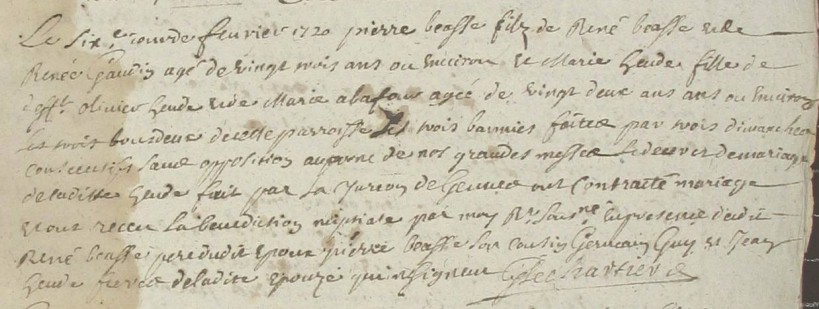 Le six.e jour de feuvrier 1720 pierre beasse filz de René beasse et de
Renée Gaudin agé de vingt trois ans ou environ et Marie heude fille de
deff.t olivier heude et de Marie alafour agéé de vingt deux ans ans ou environ
les trois bannies faites par trois dimanches
consecutifs sans opposition au prosne de nos grandes messes le decret de mariage
de laditte heude fait par la Jurion de Gennes ont contracté mariage
et ont receu la benediction nuptiale par moy R.r sous.né en presence dudit
René beasse pere dudit epoux pierre beasse son cousin Germain Guy et Jean
heude freres de ladite epouze qui ne signent G Lechartier